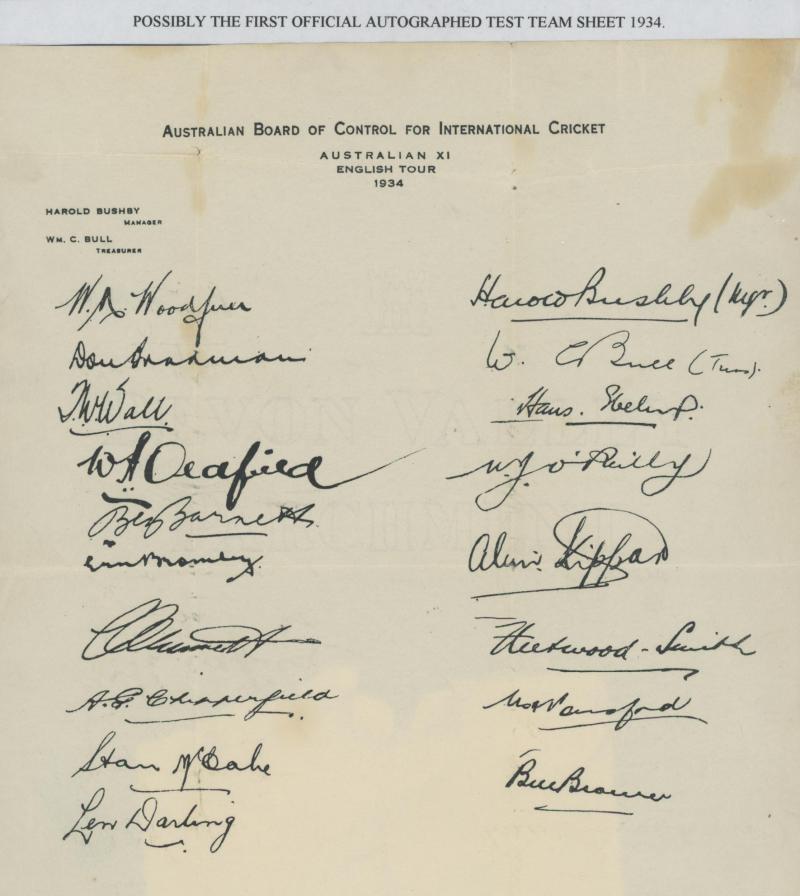 POSSIBLY THE FIRST OFFICIAL AUTOGRAPHED TEST TEAM SHEET 1934.
AUSTRALIAN BOARD OF CONTROL FOR INTERNATIONAL CRICKET
AUSTRALIAN XI
ENGLISH TOUR
1934
HAROLD BUSHBY
MANAGER
WM. C. BULL
TREASURER
W.M. Woodfull
Don Bradman
T.W. Wall
W A Oldfield
Ben Barnett
Ern Bromley
C Grimmett
A.G. Chipperfield
Stan McCabe
Len Darling
Harold Bushby (Mgr.)
W. C Bull (Treas).
Hans. Ebeling.
W.J. O'Reilly
Alan Kippax
Fleetwood-Smith
W H Ponsford
Bill Brown